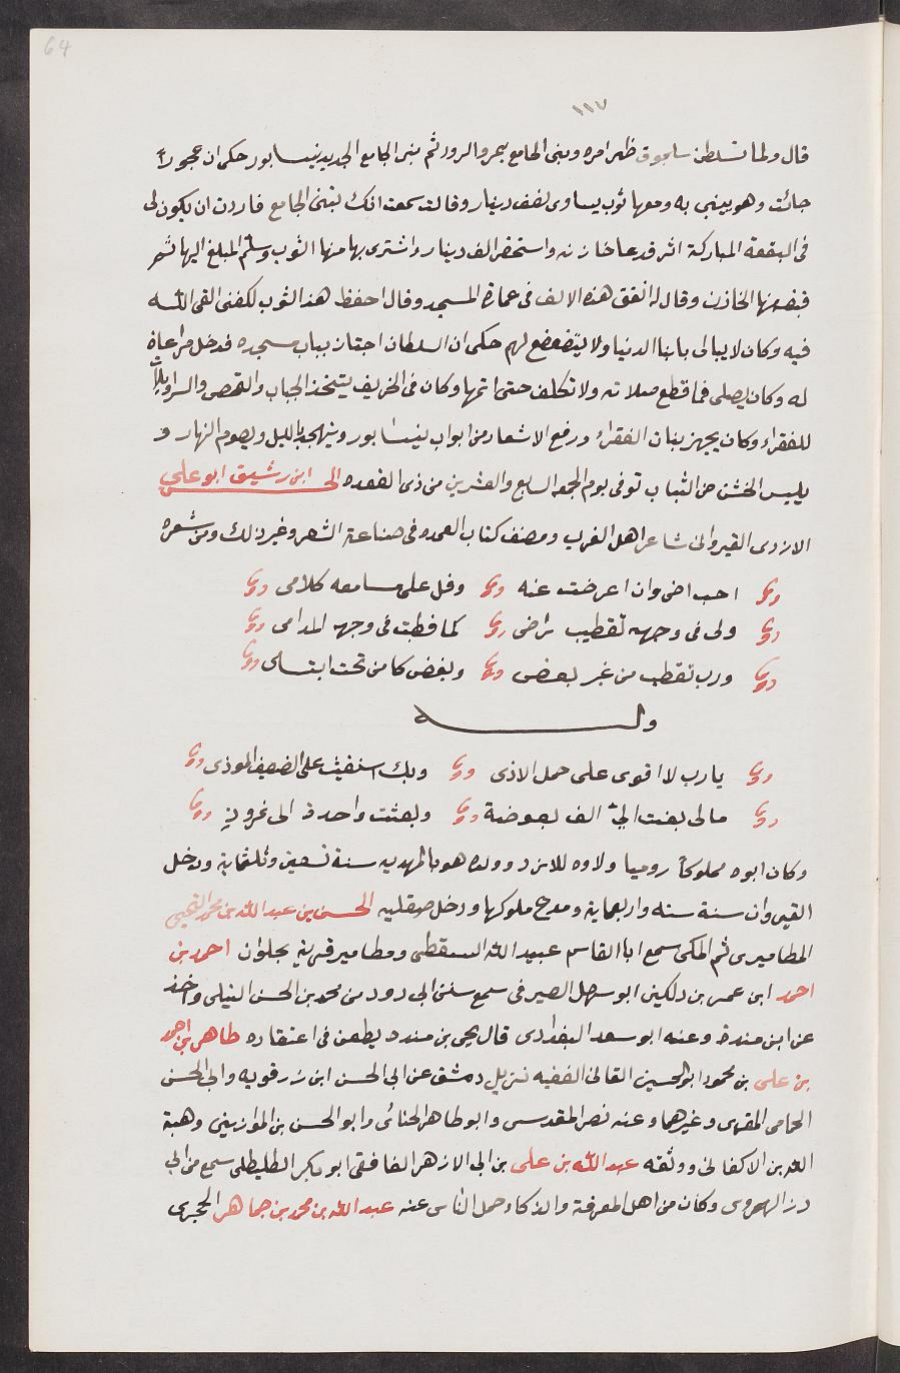 64
١١٧
قال ولما تسلطن سلجوق ظهر امره وبنى الجامع بمرو الرود ثم بنى الجامع الجديد بنيسابور حكى ان عجوزا
جائت وهو يبنى به ومعها ثوب يساوى نصف دينار وقالت سمعت انك تبنى الجامع فاردت ان يكون لى
فى البقعة المباركة اثر فدعا خازنه واستحضر الف دينار واشترى بها منها الثوب وسلم المبلغ اليها ثم
قبضه منها الخازن وقال له انفق هذه الالف فى عمارة المسجد وقال احفظ هذا الثوب لكفنى القى الله
فيه وكان لا يبالى بابنا الدنيا ولا يتضعضع لهم حكى ان السلطان اجتاز بباب مسجده فدخل مراعاة
له وكان يصلى فما قطع صلاته ولا تكلف حتى اتمها وكان فى الخريف يتخذ الجباب والقمصى والسراويلات
للفقراء وكان يجهز بنات الفقراء ورفع الاشعار من ابواب نيسابور ويتهجد بالليل ويصوم النهار و
يلبس الخشن من الثياب توفى يوم الجمعه السابع والعشرين من ذى القعده الحسن ابن رشيق ابو على
الازدى القيروانى شاعر اهل الغرب ومصنف كتاب العمده فى صناعة الشعر وغير ذلك ومن شعره
احب اخى وان اعرضت عنه وقل على مسامعه كلامى
ولى فى وجهه تقطيب راضى كما قطبت فى وجه المدامى
ورب تقطب من غير بغض وبغض كامن تحت ابتسامى
وله
يا رب لا اقوى على حمل الاذى وبك استغيث على الضعيف الموذى
مالى بعثت الىّ الف بعوضة وبعثت واحدة الى نمرود
وكان ابوه مملوكا روميا ولاوه للازد وولد هو بالمهديه سنة تسعين وثلثمائة ودخل
القيروان سنة سته واربعماية ومدح ملوكها ودخل صقليه الحسن بن عبد الله بن محمد التجيبى
المطاميرى ثم المكى سمع ابا القاسم عبيد الله السقطى ومطامير قرية بحلوان احمد بن
احمد ابن عمر بن دلكين ابو سهل الصيرفى سمع سنن ابى دود من محمد بن الحسن النيلى واخذ
عن ابن مندة وعنه ابو سعد البغدادى قال يحى بن منده يطعن فى اعتقاده طاهر بن احمد
بن على بن محمود ابو الحسين القائنى الفقيه نزيل دمشق عن ابى الحسن ابن زرقويه وابى الحسن
الحمامى المقرى وغيرهما وعنه نصر المقدسى وابو طاهر الحنائى وابو الحسن بن الموازينى وهبة
الله بن الاكفانى ووثقه عبد الله بن على بن ابى الازهر الغافقى ابو بكر الطليطلى سمع من ابى
ذر الهروى وكان من اهل المعرفة والذكا وحمل الناس عنه عبد الله بن محمد بن جماهر الحجرى